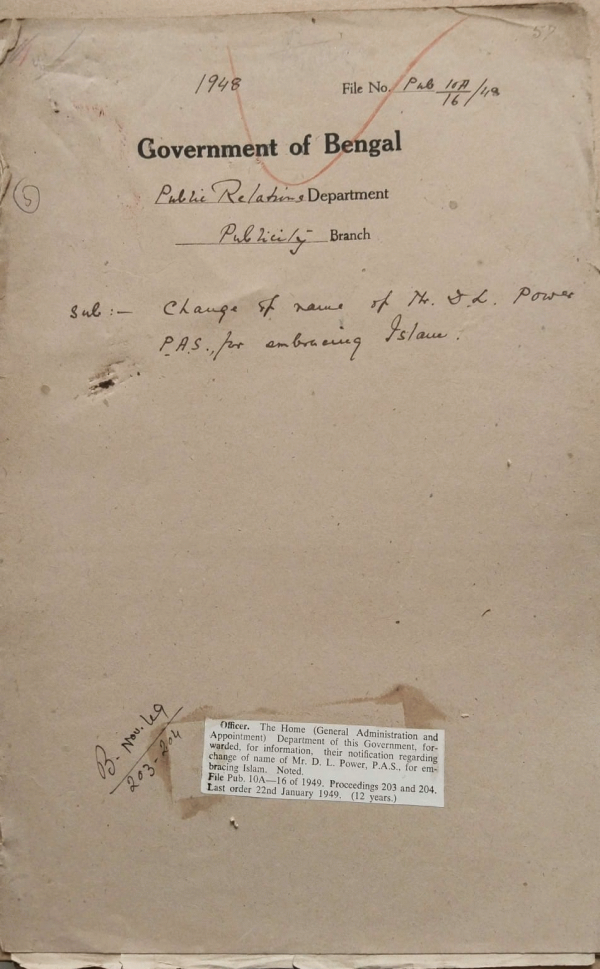 57
1948
File No. Pub 10A/16/48
Government of Bengal
(5)
Public Relations Department
Publicity Branch
Sub :- Change of name of Mr. D. L. Power
P.A.S., for embracing Islam.
B. Nov. 49
203-204
Officer. The Home (General Administration and
Appointment) Department of this Government, for-
warded, for information, their notification regarding
change of name of Mr. D. L. Power, P.A.S., for em-
bracing Islam. Noted.
File Pub. 10A—16 of 1949. Proceedings 203 and 204.
Last order 22nd January 1949. (12 years.)